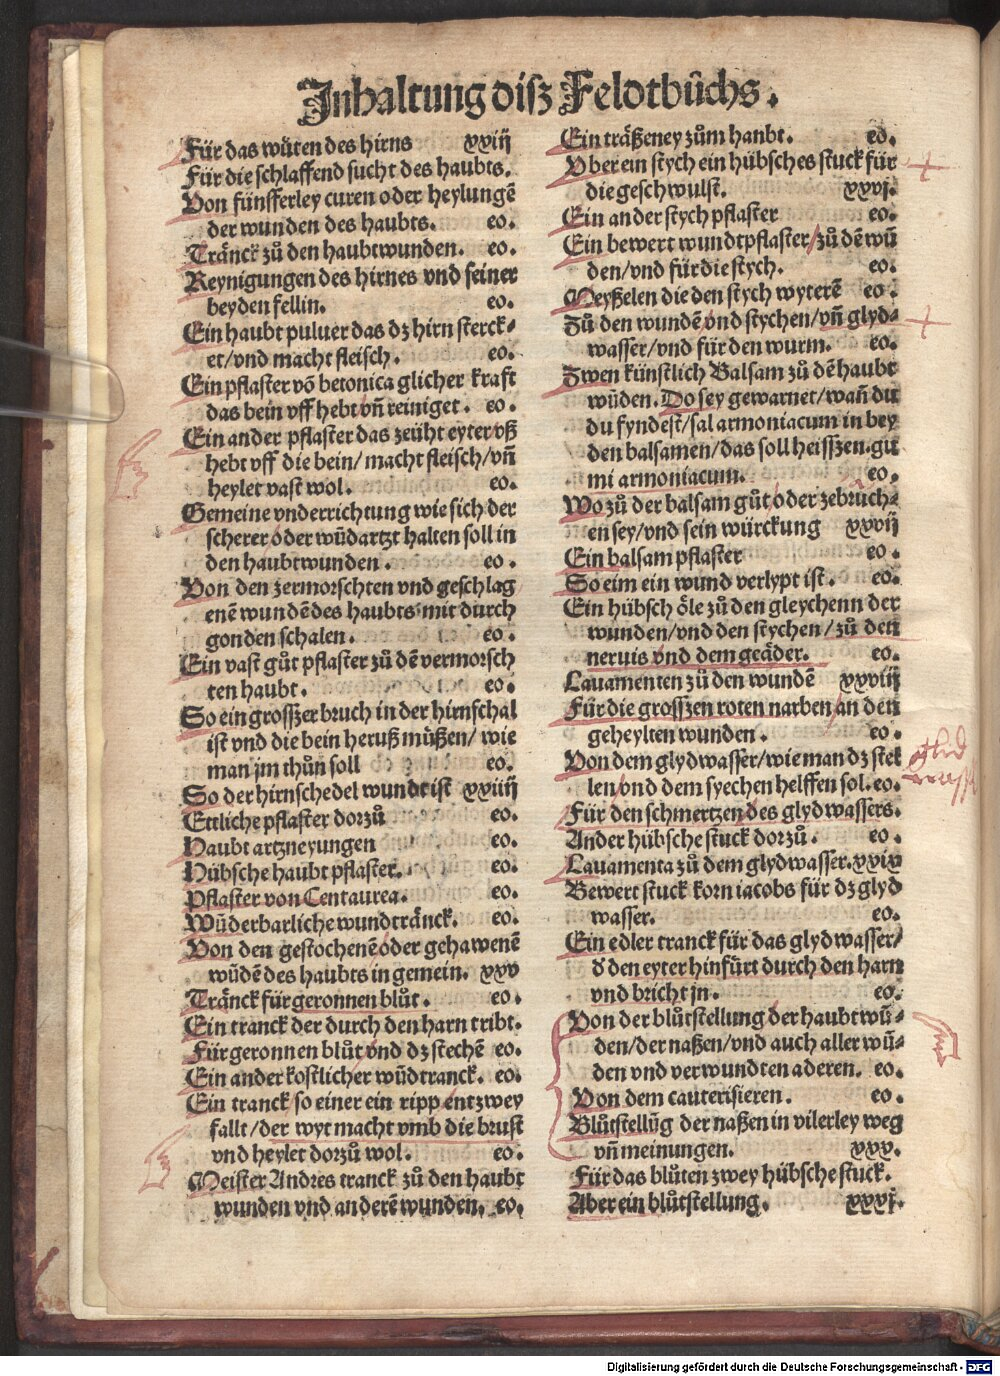 Inhaltung disz Feldtbuͦchs.
Für das wüten des hirns xxiij
Für die schlaffend sucht des haubts.
Von fünfferley curen oder heylungē
der wunden des haubts. eo.
Tränck zuͦ den haubtwunden. eo.
Reynigungen des hirnes vnd seiner
beyden fellin. eo.
Ein haubt puluer das dz hirn sterck⸗
et/vnd macht fleisch. eo.
Ein pflaster vō betonica glicher kraft
das bein vff hebt vñ reiniget. eo.
Ein ander pflaster das zeüht eyter vß
hebt vff die bein/ macht fleisch/vñ
heylet vast wol. eo.
Gemeine vnderrichtung wie sich der
scherer oder wūdartzt halten soll in
den haubtwunden. eo.
Von den zermorschten vnd geschlag
enē wundē des haubts mit durch
gonden schalen. eo.
Ein vast guͦt pflaster zuͦ dē vermorsch
ten haubt. eo.
So ein grosszer bruch in der hirnschal
ist vnd die bein heruß müßen/ wie
man jm thuͦn soll eo.
So der hirnschedel wundt ist xxiiij
Ettliche pflaster dorzuͦ eo.
Haubt artzneyungen eo.
Hübsche haubt pflaster. eo.
Pflaster von Centaurea. eo.
Wūderbarliche wundtränck. eo.
Von den gestochenē oder gehawenē
wūdē des haubts in gemein. xxv
Tränck für geronnen bluͦt. eo.
Ein tranck der durch den harn tribt.
Für geronnen bluͦt vnd dz stechē eo.
Ein ander kostlicher wūdtranck. eo.
Ein tranck so einer ein ripp entzwey
fallt/der wyt macht vmb die brust
vnd heylet dorzuͦ wol. eo.
Meister Andres tranck zuͦ den haubt
wunden vnd anderē wunden. eo.
Ein träßeney zuͦm haubt. eo.
Vber ein stych ein hübsches stuck für
die geschwulst. xxvj.
Ein ander stych pflaster eo.
Ein bewert wundtpflaster/zuͦ dē wū
den/vnd für die stych. eo.
Meyßelen die den stych wyterē eo.
Zuͦ den wundē vnd stychen/vñ glyd⸗
wasser/vnd für den wurm. eo.
Zwen künstlich Balsam zuͦ dē haubt
wūden. Do sey gewarnet/wañ du
du fyndest/sal armoniacum in bey
den balsamen/das soll heisszen gū
mi armoniacum. eo.
Wo zuͦ der balsam guͦt oder zebruͦch⸗
en sey/vnd sein würckung xxvij
Ein balsam pflaster eo.
So eim ein wund verlypt ist. eo.
Ein hübsch öle zuͦ den gleychenn der
wunden/vnd den stychen/zuͦ den
neruis vnd dem geäder. eo.
Lauamenten zuͦ den wundē xxviij
Für die grosszen roten narben an den
geheylten wunden. eo.
Von dem glydwasser/wie man dz stel
len/vnd dem syechen helffen sol. eo.
Für den schmertzen des glydwassers.
Ander hübsche stuck dorzuͦ. eo.
Lauamenta zuͦ dem glydwasser. xxix
Bewert stuck korn iacobs für dz glyd
wasser. eo.
Ein edler tranck für das glydwasser/
d den eyter hinfürt durch den harn
vnd bricht jn. eo.
Von der bluͦtstellung der haubtwū⸗
den/der naßen/vnd auch aller wū⸗
den vnd verwundten aderen. eo.
Von dem cauterisieren. eo.
Bluͦtstellūg der naßen in vilerley weg
vñ meinungen. xxx.
Für das bluͦten zwey hübsche stuck.
Aber ein bluͦtstellung. xxxj.
glid
wass
Digitalisierung gefördert durch die Deutsche Forschungsgemeinschaft - DFG